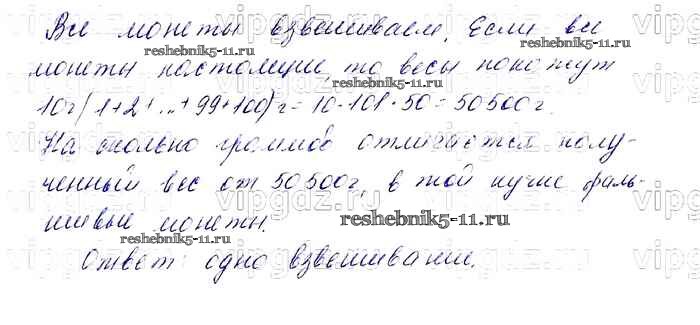 Все монеты взвешиваем. Если все
монеты настоящие, то весы покажут
10г(1+2+...+99+100)г = 10·101·50 = 50500г.
На сколько граммов отличается полу-
ченный вес от 50500г, в той кучке фаль-
шивые монеты.
Ответ: одно взвешивание.
vipgdz.ru
reshebnik5-11.ru
reshebnik5-11.ru
reshebnik5-11.ru
reshebnik5-11.ru
reshebnik5-11.ru